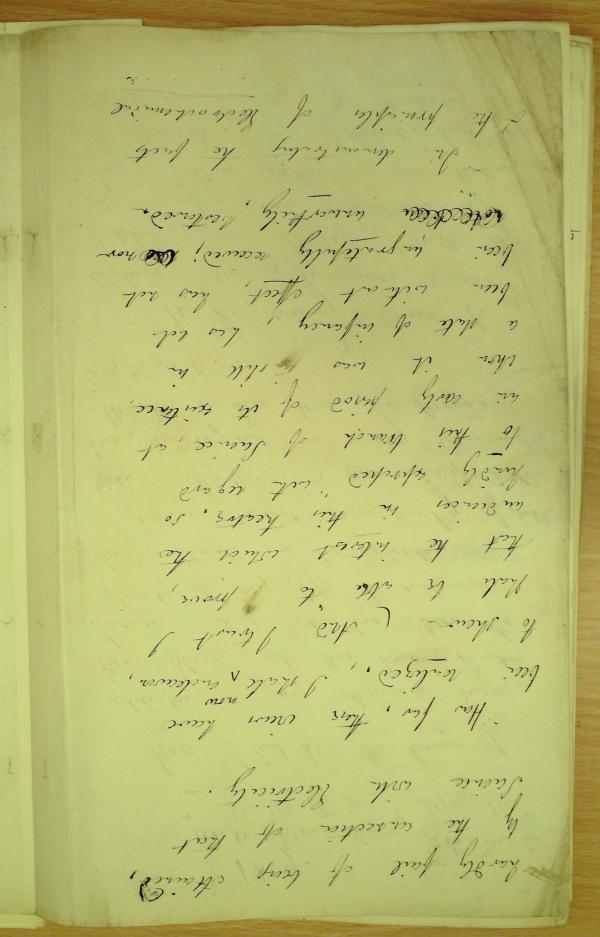 hardly fail of being attained,
by the connection of that
Science with Electricity.
How far, these views have
been realized, I shall now endeavour,
to shew - And I trust I
shall be able to prove,
that the interest which the
audiences in this theatre, so
kindly expressed, with regard
to this branch of Science, at
an early period of its existence,
when it was still in
a state of infancy, has not
been without effect, has not
been ungratefully received; nor
unworthily bestowed.
In demonstrating the facts
& the principles of Electrochemical